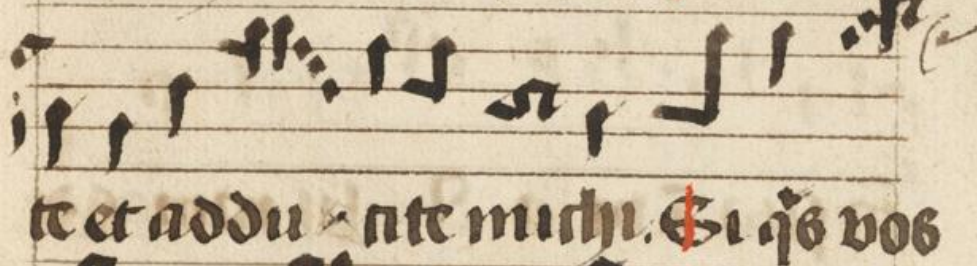 te et addu cite michi. Si q̃s vos